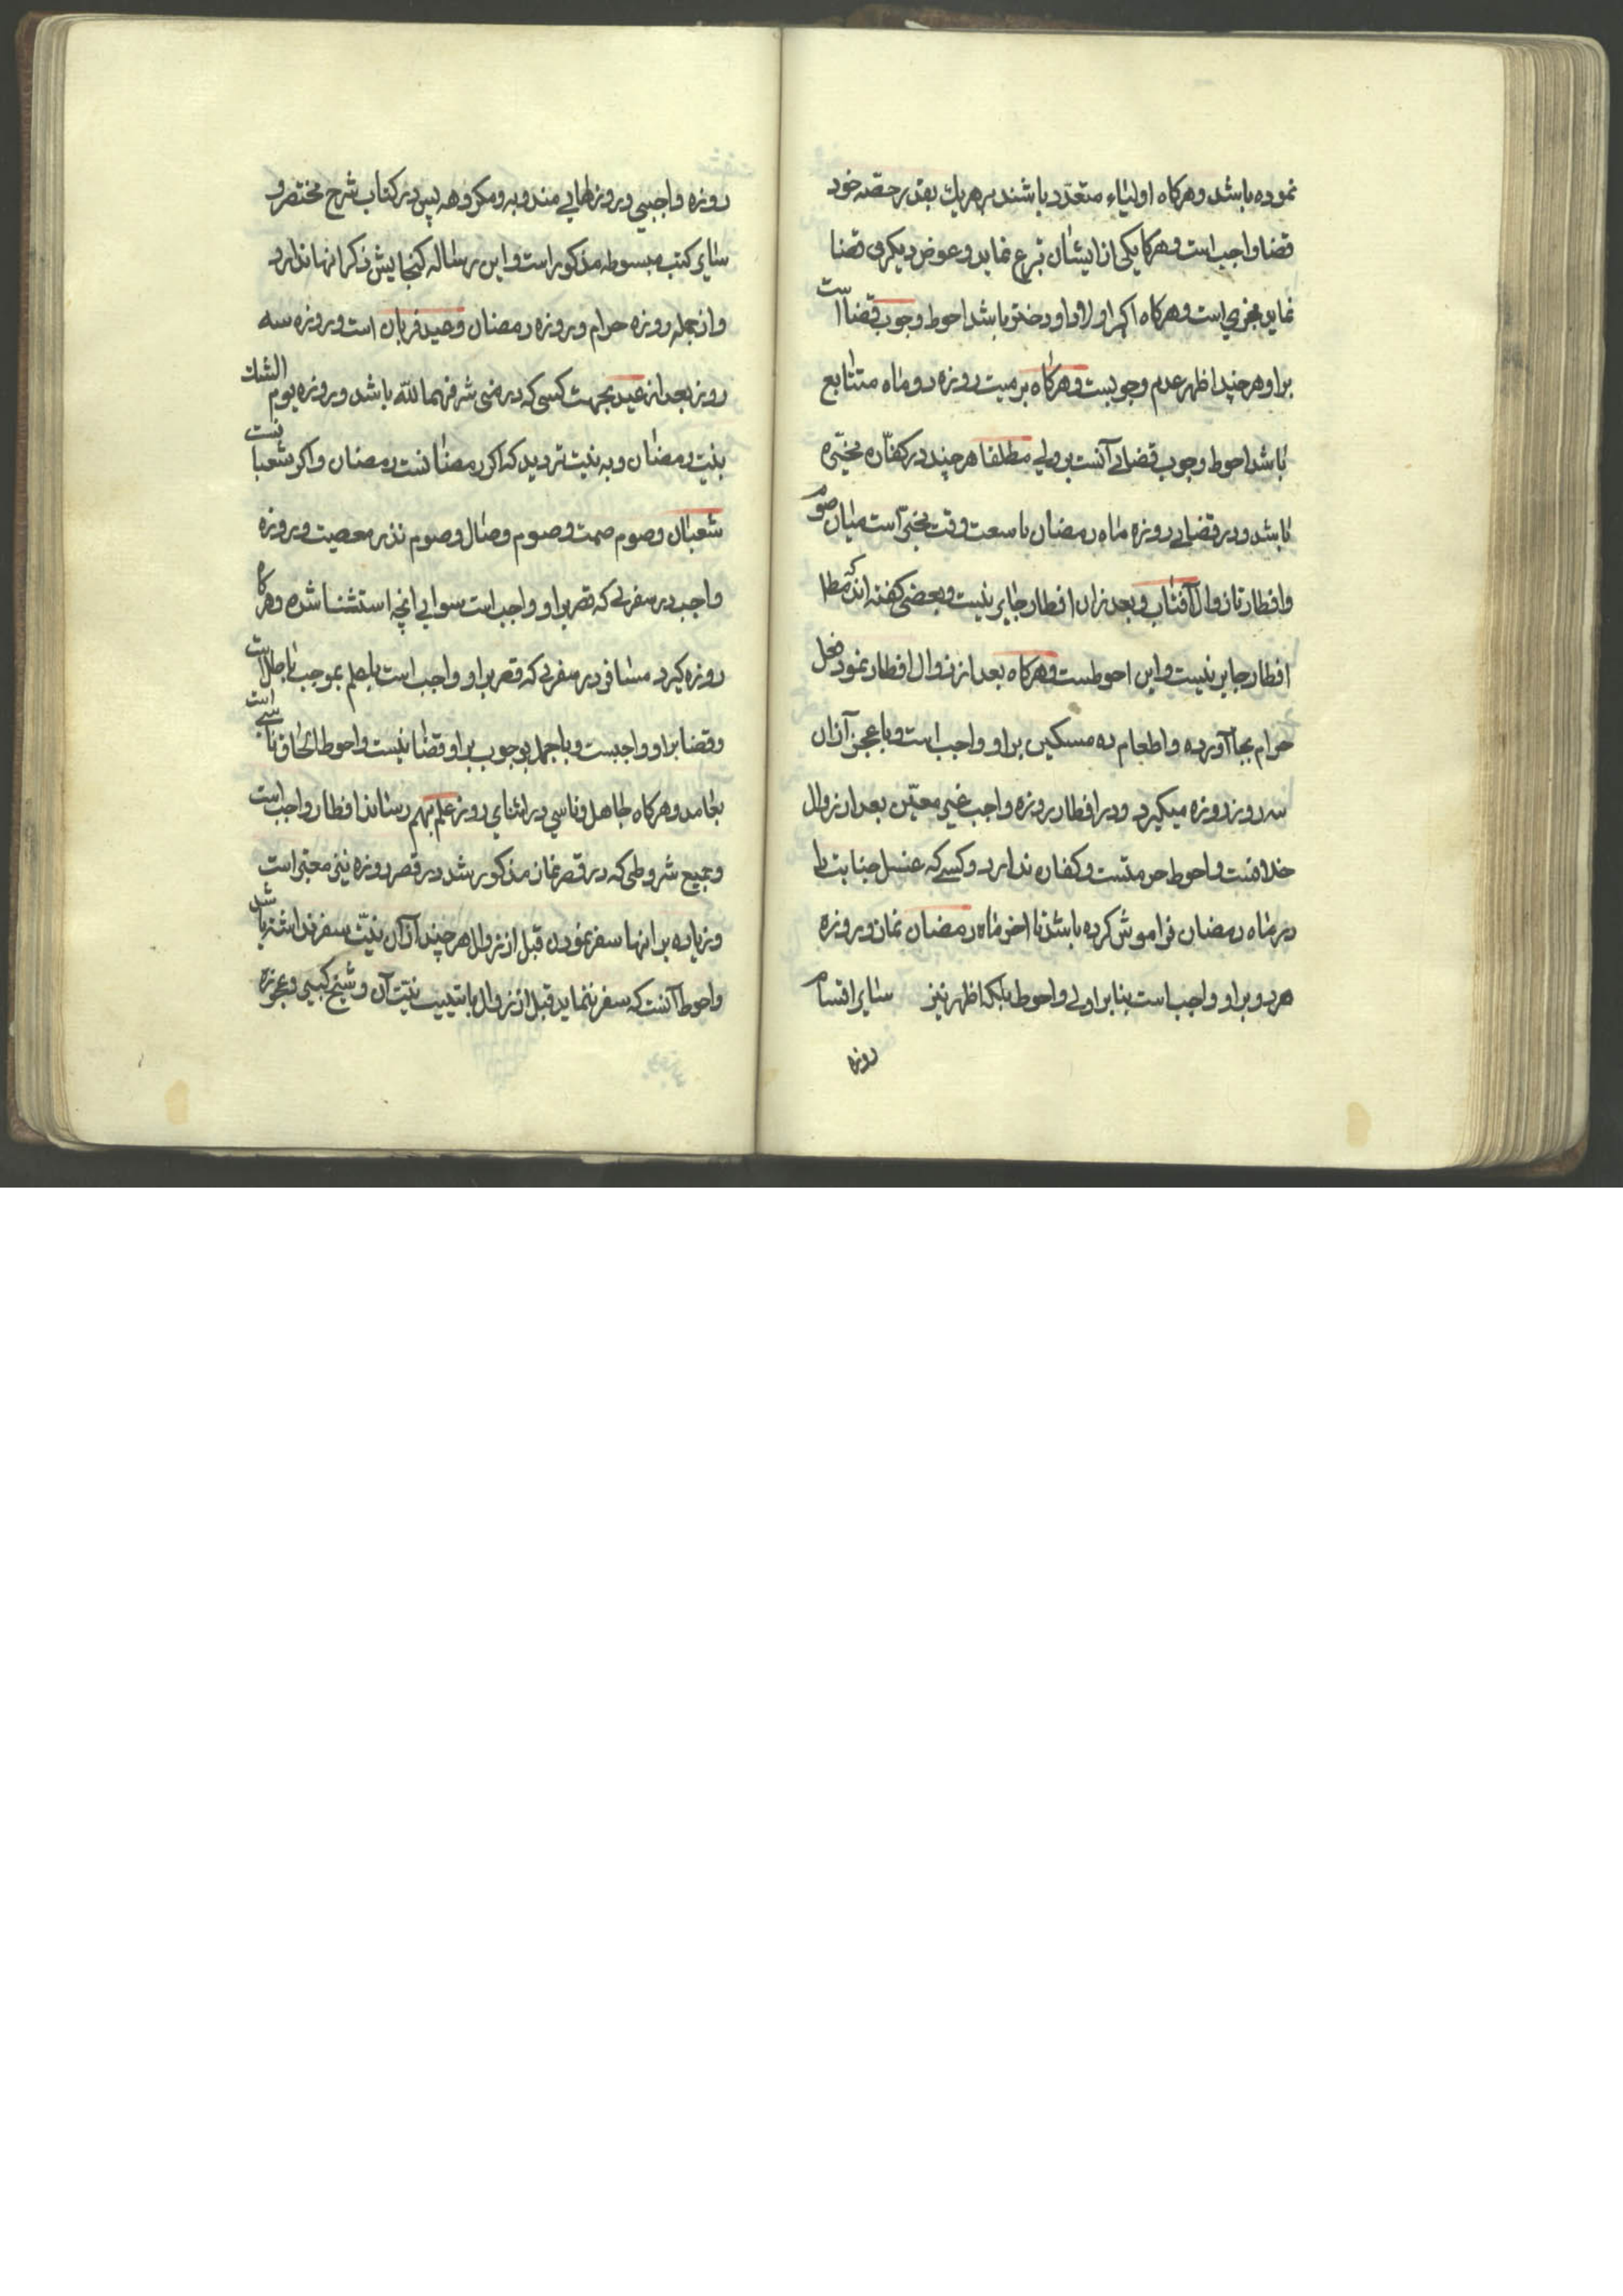 نموده باشد وهرکاه اولیاء متعدد باشند بر هریك بقدر حصّه خود
قضا واجب است وهرکا یکی از ایشان تبرع نماید و عوض دیکری قضا
نماید مجزی است وهرکاه اکبر اولاد او دختر باشد احوط وجوب قضا است
براو هرچند اظهر عدم وجوبست وهرکاه بر میت روزه دو ماه متتابع
باشد احوط وجوب قضای آنست بر ولی مطلقا هرچند در کفّاره مخیّره
باشد و در قضای روزه ماه رمضان با سعت وقت مخیّر است میان صوم
وافطار تا زوال آفتاب و بعد زان افطار جایز نیست و بعضی کفته اند که مطلا
افطار جایز نیست و این احوطست وهرکاه بعد از زوال افطار نمود فعل
حرام بجا آورده و اطعام ده مسکین براو واجب است و با عجز آزان
سه روز روزه میکیرد و در افطار روزه واجب غیر معیّن بعد از زوال
خلافست و احوط حرمتست و کفاره ندارد و کسی که غسل جنابت را
در ماه رمضان فراموش کرده باشد تا اخر ماه رمضان نماز و روزه
هر دو براو واجب است بنا بر اولی و احوط بلکه اظهر نیز سایر اقسام
روزه
روزه واجبی و روزهایی مندوبه و مکروهه پس در کتاب شرح مختصر و
سایر کتب مبسوطه مذکور است و این رساله کنجایش ذکر انها ندارد
و از جمله روزه حرام و روزه رمضان وعید قربان است و روزه سه
روز بعد از عید بجهت کسی که در منی شرفهما للّه باشد و روزه یوم الشك
بنیت رمضان و به نیت تردید که اکر رمضا نست رمضان و اکر شعبا نست
شعبان و صوم صمت و صوم وصال و صوم نذر معصیت و روزه
واجب در سفری که قصر براو واجب است سوایی انچه استثنا شده وهرکاه
روزه کیرد مسافر در سفری که قصر براو واجب است باعلم بموجب باطل است
و قضا براو واجبست و با جهل بوجوب براو قضا نیست و احوط الحاق ناسی است
بعامد وهرکاه جاهل و ناسی در اثنای روز علم بهم رساند افطار واجب است
و جمیع شروطی که در قصر نماز مذکور شد در قصر روزه نیز معتبر است
و زیاده بر اینها سفر نمودن قبل از زوال هرچند از آن نیّت سفر نداشته باشد
و احوط آنست که سفر ننماید قبل از زوال با تبییت نیّت آن و شیخ کبیر و عجوزه